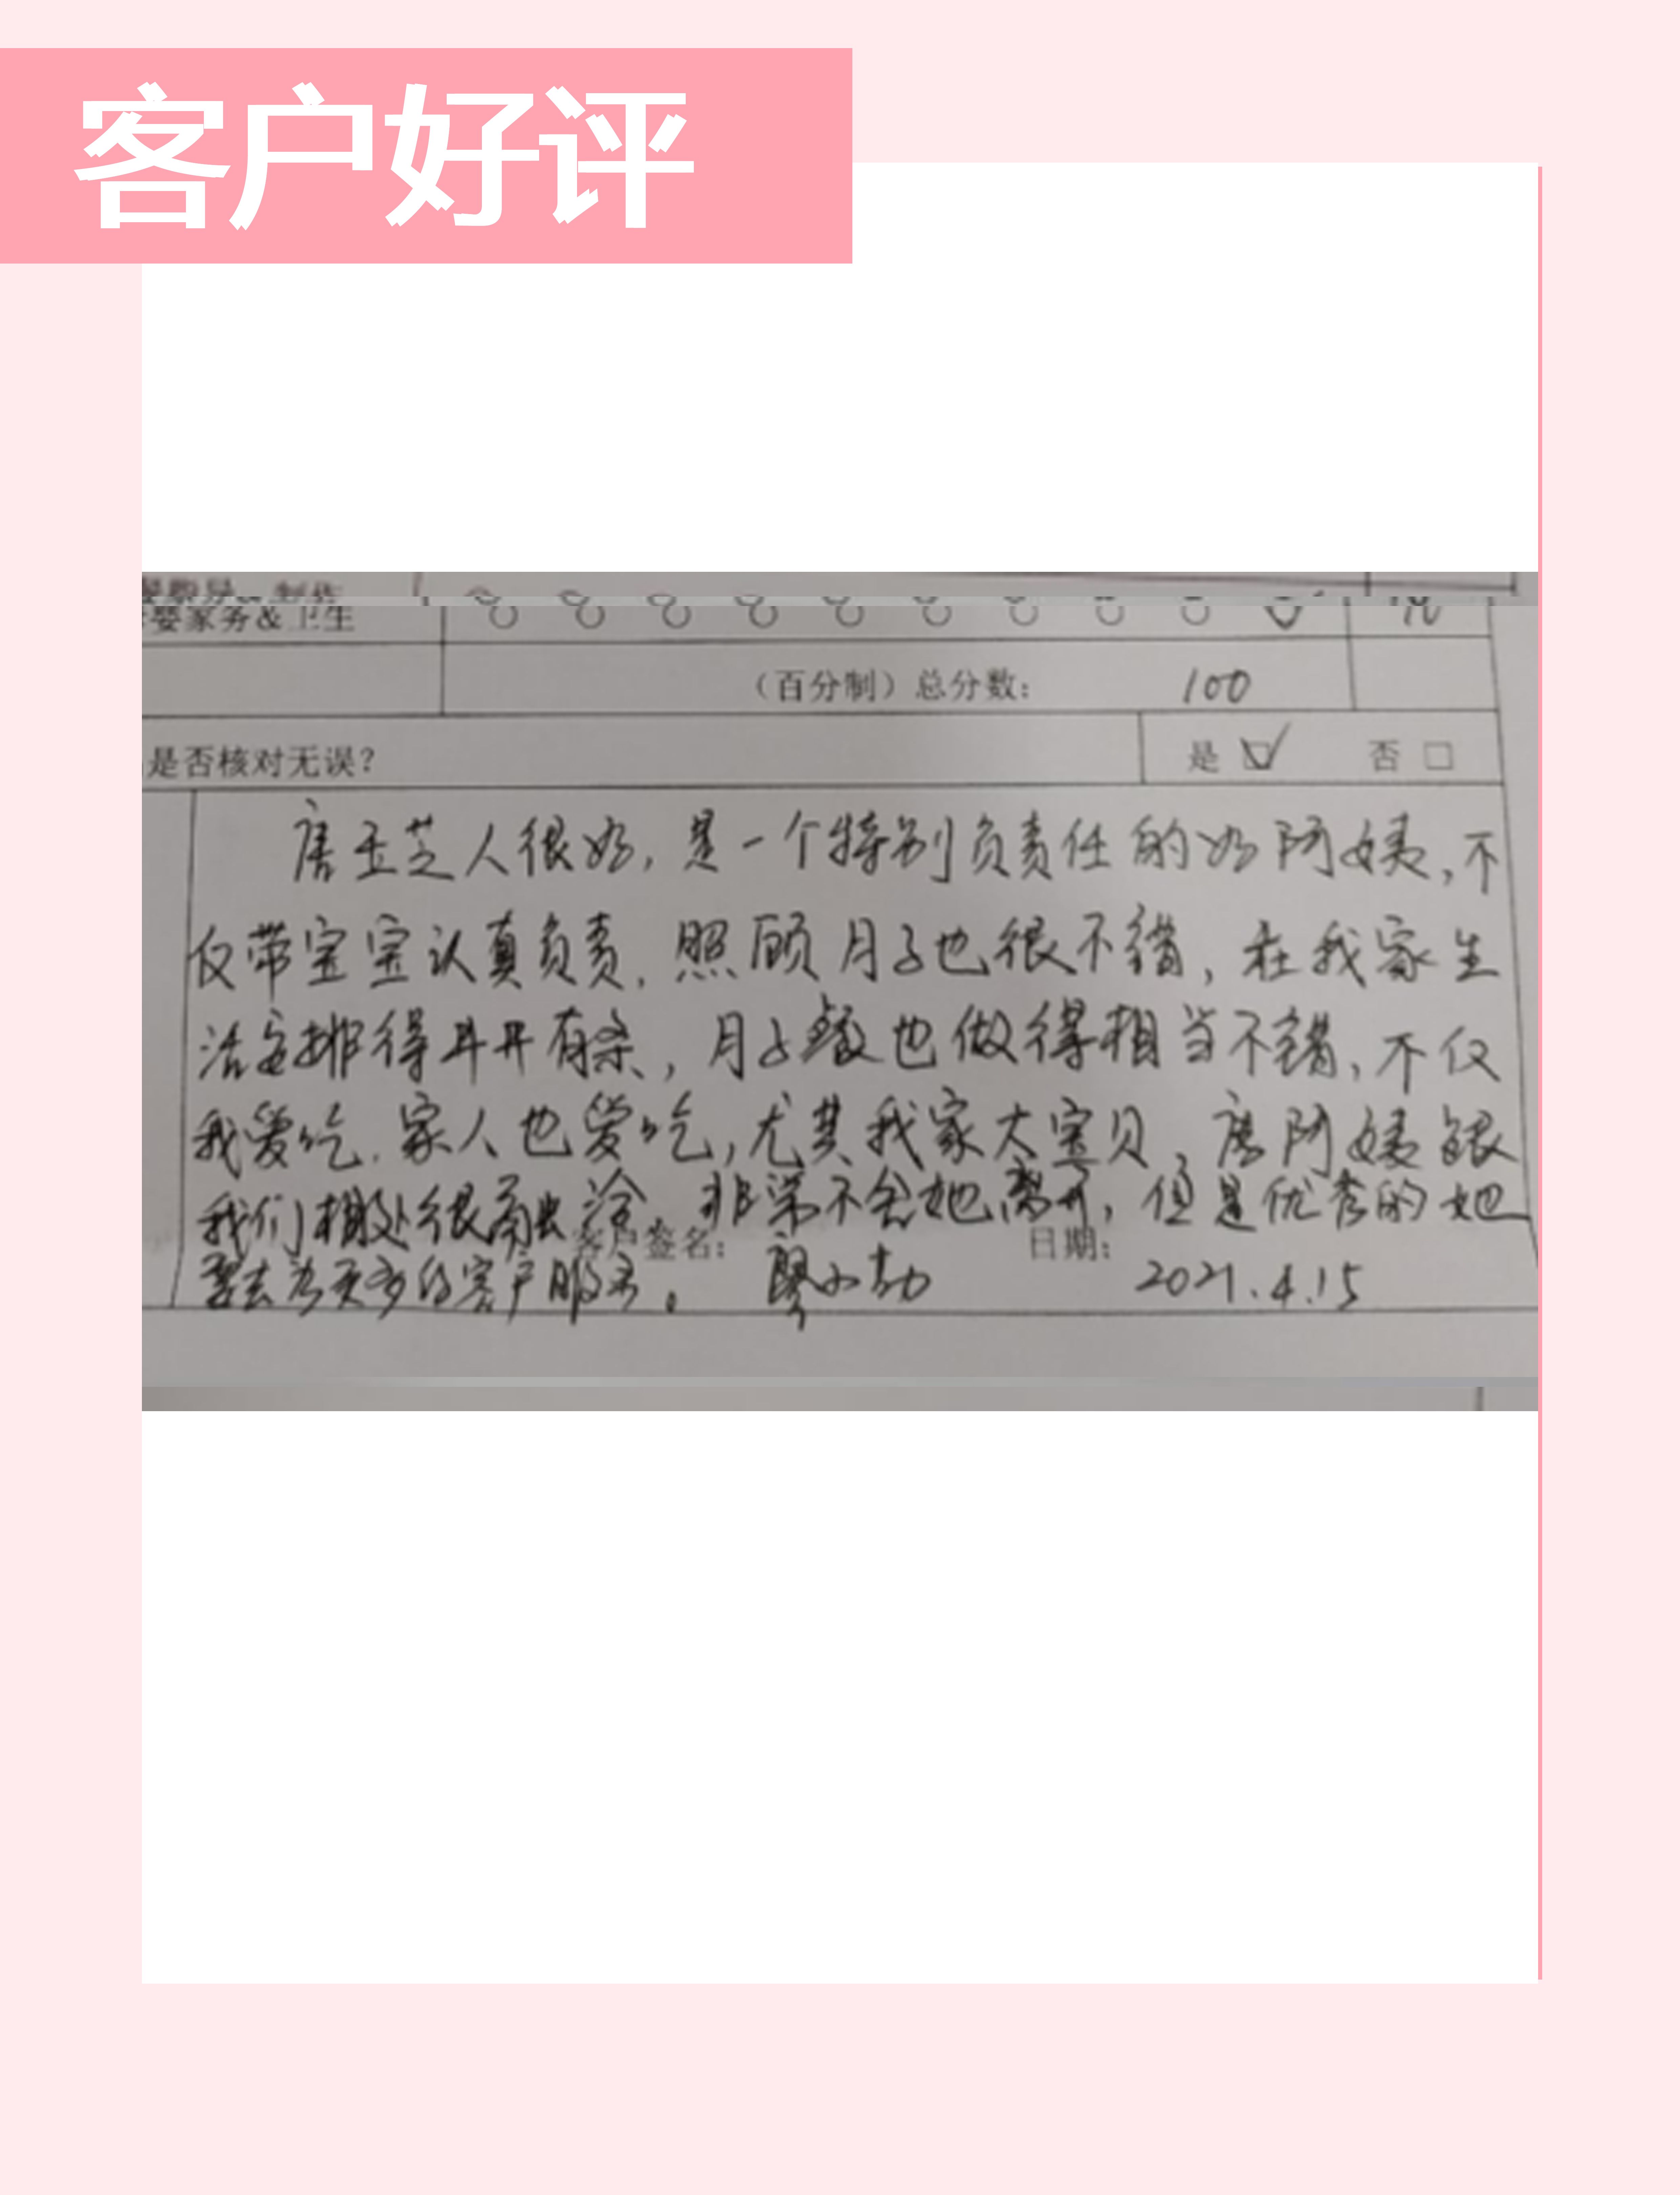 客户好评
婴家务&卫生
10
（百分制）总分数： 100
是否核对无误？ 是 ☑ 否 □
唐玉芝人很好，是一个特别负责任的好阿姨，不
仅带宝宝认真负责，照顾月子也很不错，在我家生
活安排得井井有条，月子餐也做得相当不错，不仅
我爱吃，家人也爱吃，尤其我家大宝贝，唐阿姨跟
我们相处很融洽，非常不舍她离开，但是优秀的她
客户签名： 日期：
要去为更多的客户服务。 廖小 2021.4.15